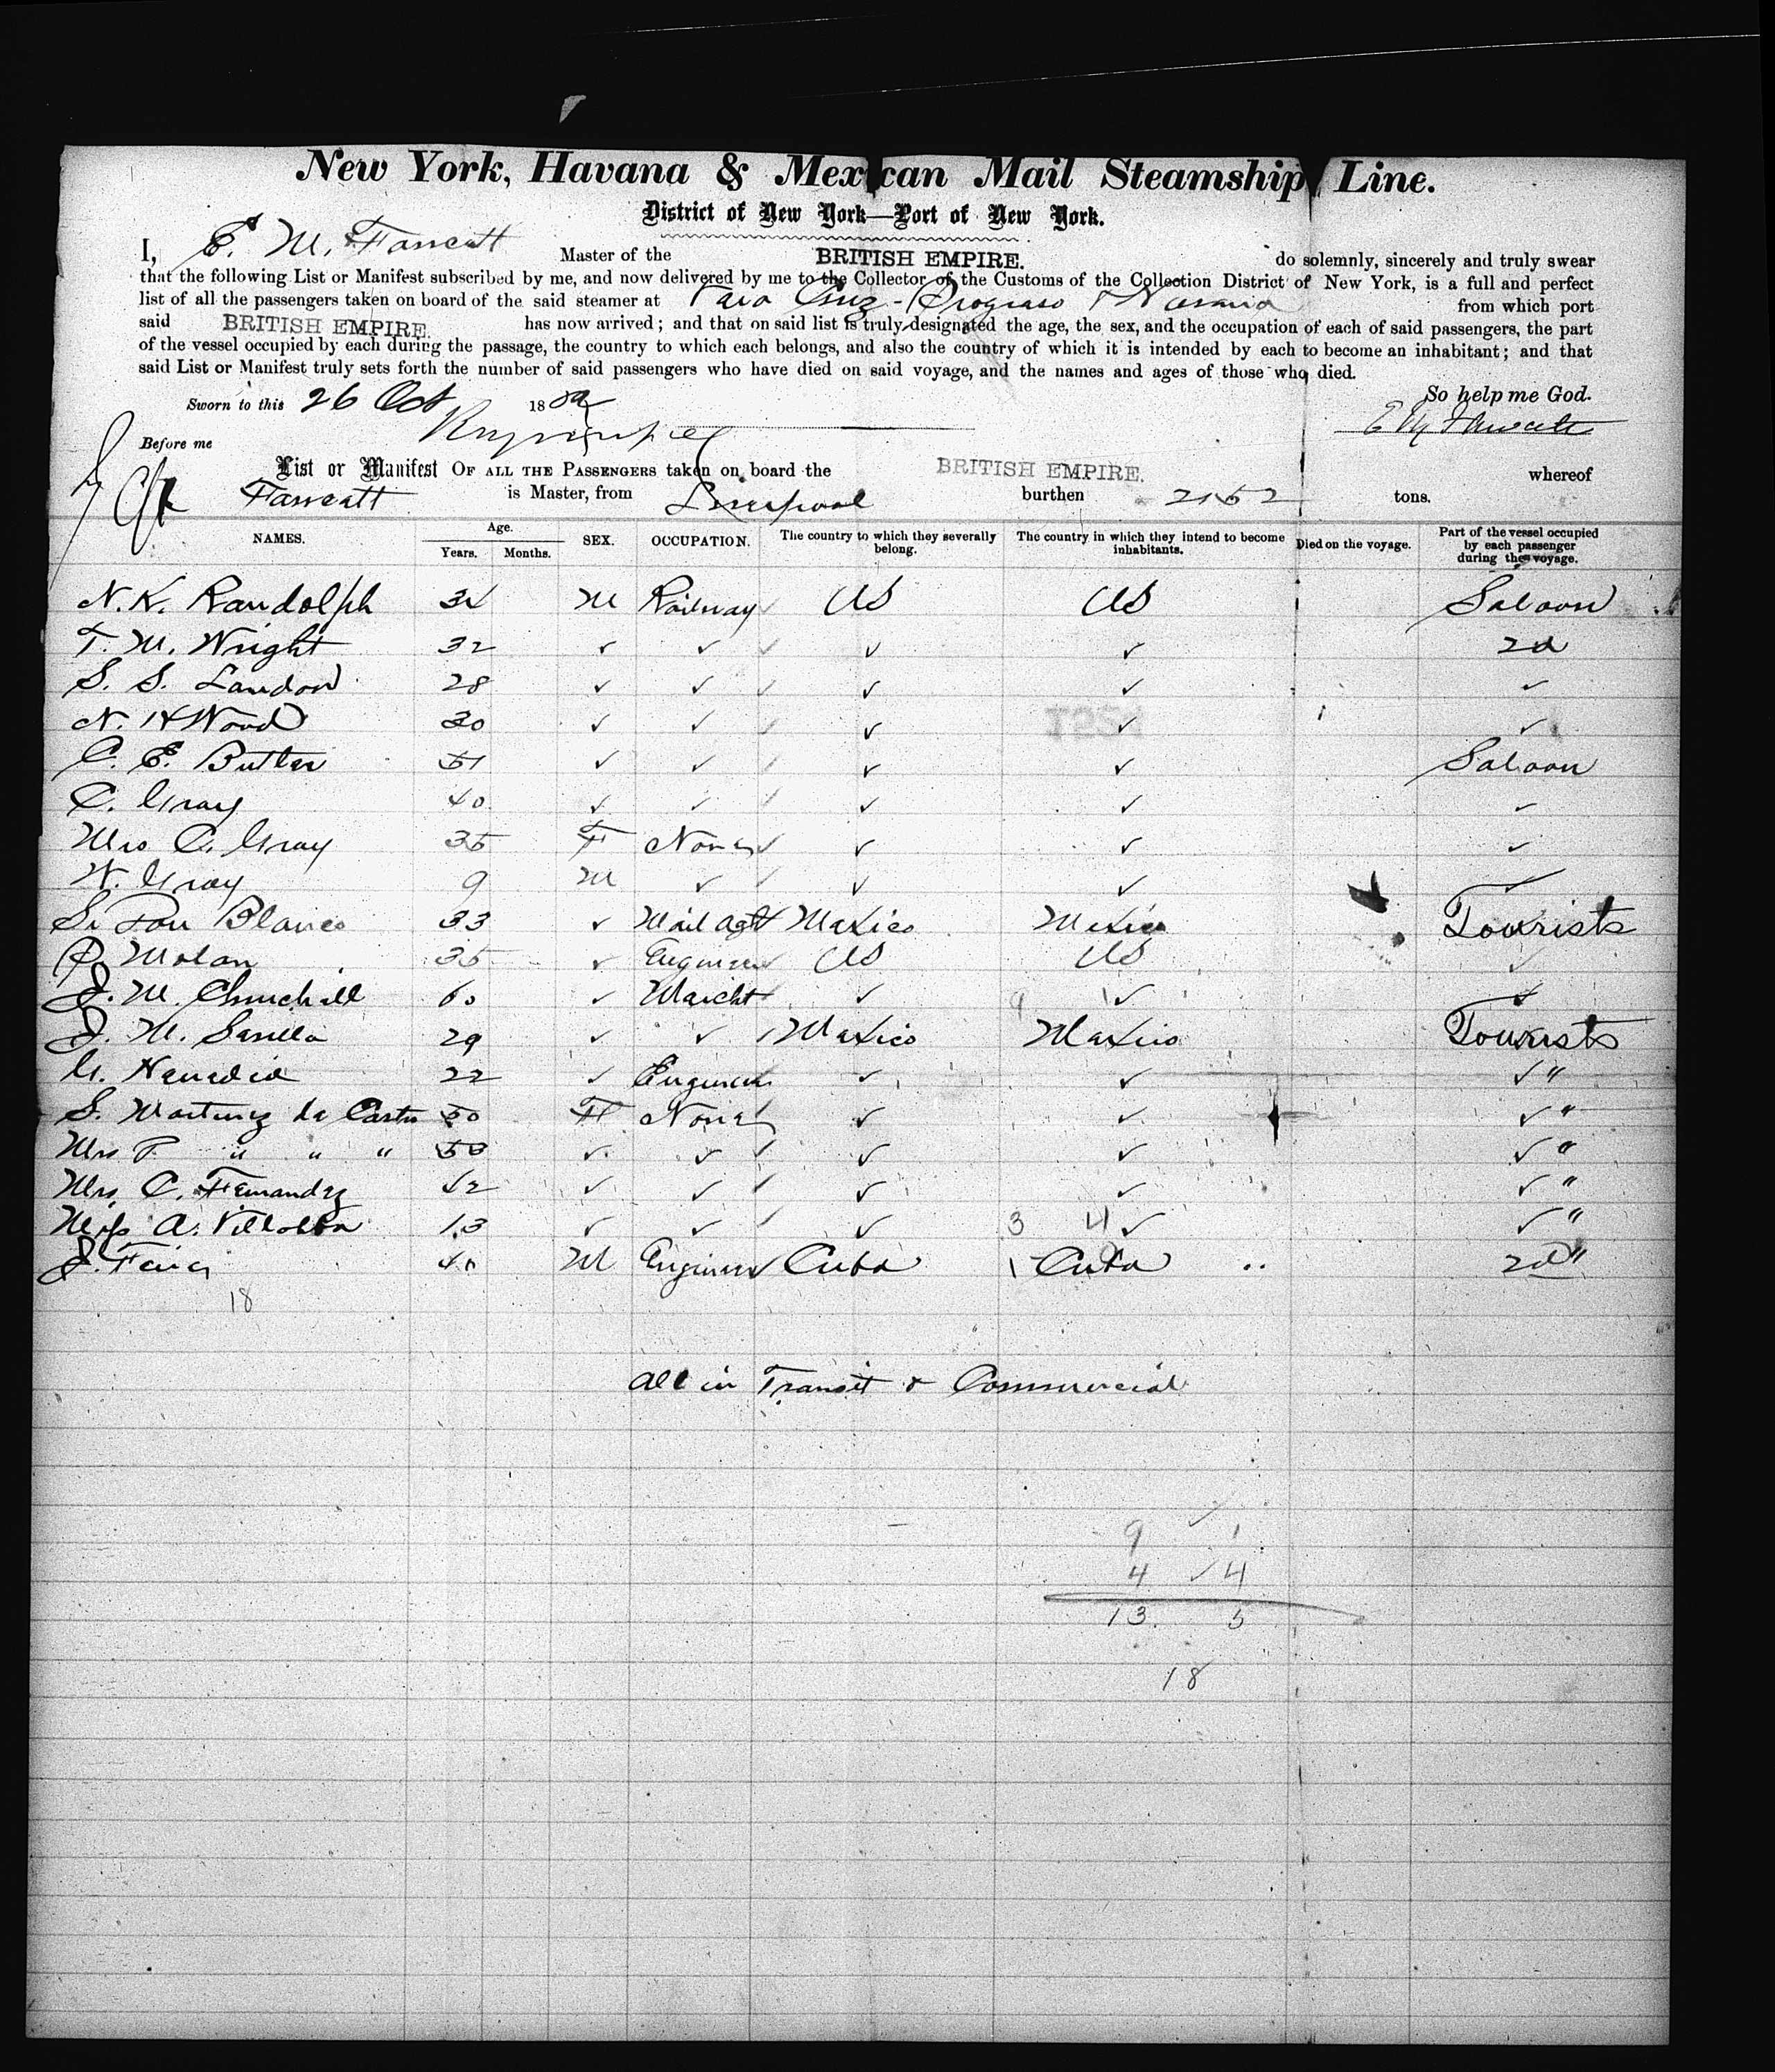 New York, Havana & Mexican Mail Steamship Line.
District of New York—Port of New York.
I, E. M. Fawcett Master of the BRITISH EMPIRE. do solemnly, sincerely and truly swear
that the following List or Manifest subscribed by me, and now delivered by me to the Collector of the Customs of the Collection District of New York, is a full and perfect
list of all the passengers taken on board of the said steamer at Vera Cruz - Progreso & Havana from which port
said BRITISH EMPIRE. has now arrived; and that on said list is truly designated the age, the sex, and the occupation of each of said passengers, the part
of the vessel occupied by each during the passage, the country to which each belongs, and also the country of which it is intended by each to become an inhabitant; and that
said List or Manifest truly sets forth the number of said passengers who have died on said voyage, and the names and ages of those who died.
So help me God.
Sworn to this 26 Oct 1882
E M Fawcett
Before me
List or Manifest OF ALL THE PASSENGERS taken on board the BRITISH EMPIRE. whereof
Fawcett is Master, from Liverpool burthen 2152 tons.
NAMES. Age. Years. Months. SEX. OCCUPATION. The country to which they severally belong. The country in which they intend to become inhabitants. Died on the voyage. Part of the vessel occupied by each passenger during the voyage.
N. K. Randolph 34 M Railway ✓ US US Saloon
T. M. Wright 32 ✓ ✓ ✓ ✓ ✓ 2d
S. S. Landon 28 ✓ ✓ ✓ ✓ ✓ ✓
N. H Wood 30 ✓ ✓ ✓ ✓ ✓ ✓
C. E. Butler 51 ✓ ✓ ✓ ✓ ✓ Saloon
C. Gray 40 ✓ ✓ ✓ ✓ ✓ ✓
Mrs C. Gray 35 F None ✓ ✓ ✓ ✓
W. Gray 9 M ✓ ✓ ✓ ✓ ✓
Blanco 33 ✓ Mail Agt Mexico Mexico Tourists
Molan 35 ✓ Engineer ✓ US US ✓
J. M. Churchill 60 ✓ Mercht ✓ 9 1 ✓ ✓
J. M. 29 ✓ ✓ Mexico Mexico Tourists
G. 22 ✓ Engineer ✓ ✓ ✓ "
S. Martinez de Castro 50 F None ✓ ✓ ✓ "
Mrs P. " " " 53 ✓ ✓ ✓ ✓ ✓ "
Mrs. C. Fernandez 42 ✓ ✓ ✓ ✓ ✓ ✓ "
Miss A. Villalba 13 ✓ ✓ ✓ ✓ 3 4 ✓ ✓ "
J. 40 M Engineer ✓ Cuba 1 Cuba 2d "
18
All in Transit & Commercial
9 ✓ 1
4 ✓ 4
13. 5
18